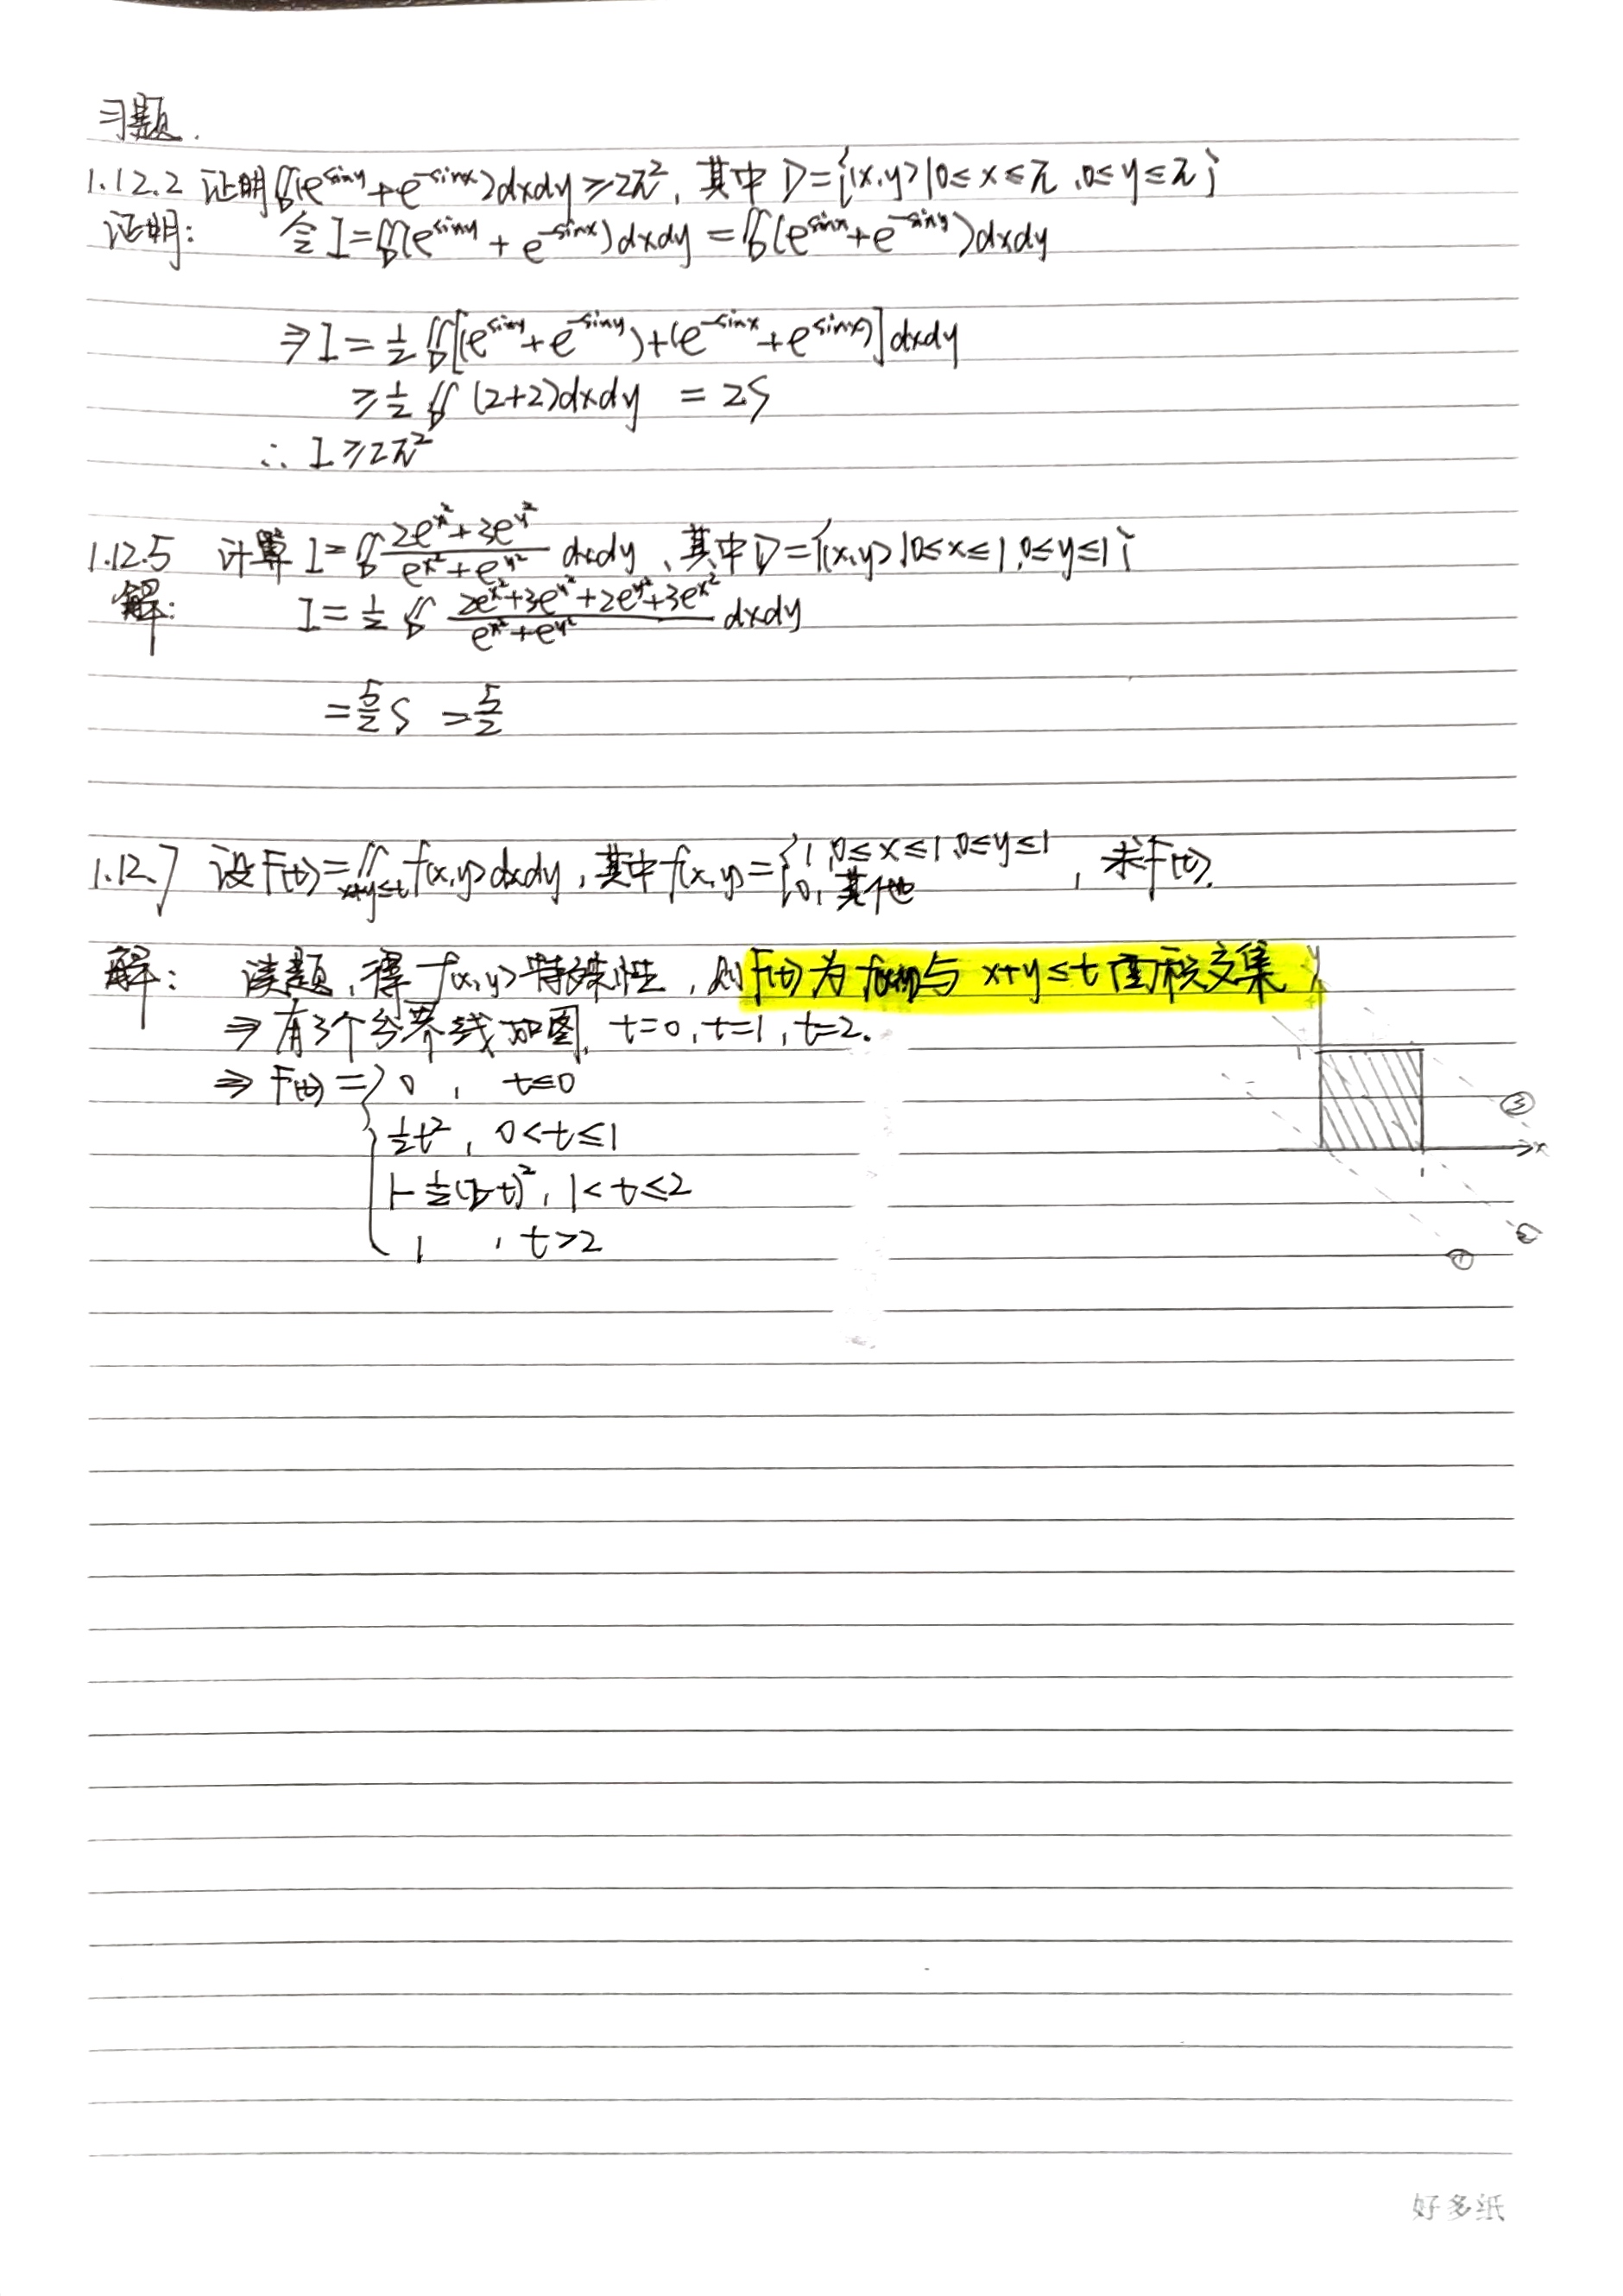 习题.
1.12.2 证明∬_D(e^{siny}+e^{-sinx})dxdy≥2π², 其中 D={(x,y)|0≤x≤π,0≤y≤π}
证明: 令 I=∬_D(e^{siny}+e^{-sinx})dxdy=∬_D(e^{sinx}+e^{-siny})dxdy
⇒I=½∬_D[(e^{siny}+e^{-siny})+(e^{-sinx}+e^{sinx})]dxdy
≥½∬_D(2+2)dxdy =2S
∴ I≥2π²
1.12.5 计算 I=∬_D (2e^{x²}+3e^{y²})/(e^{x²}+e^{y²}) dxdy, 其中D={(x,y)|0≤x≤1,0≤y≤1}
解: I=½∬_D (2e^{x²}+3e^{y²}+2e^{y²}+3e^{x²})/(e^{x²}+e^{y²}) dxdy
=5/2 S =5/2
1.12.7 设F(t)=∬_{x+y≤t} f(x,y)dxdy, 其中f(x,y)={1,0≤x≤1,0≤y≤1 0,其他, 求F(t).
解: 读题,得 f(x,y)特殊性,则F(t)为 f(x,y)与 x+y≤t 面积交集
⇒有3个分界线如图, t=0,t=1,t=2.
⇒ F(t)={0, t≤0
½t², 0<t≤1
1-½(2-t)², 1<t≤2
1, t>2
y
1
③
x
1
②
①
好多纸